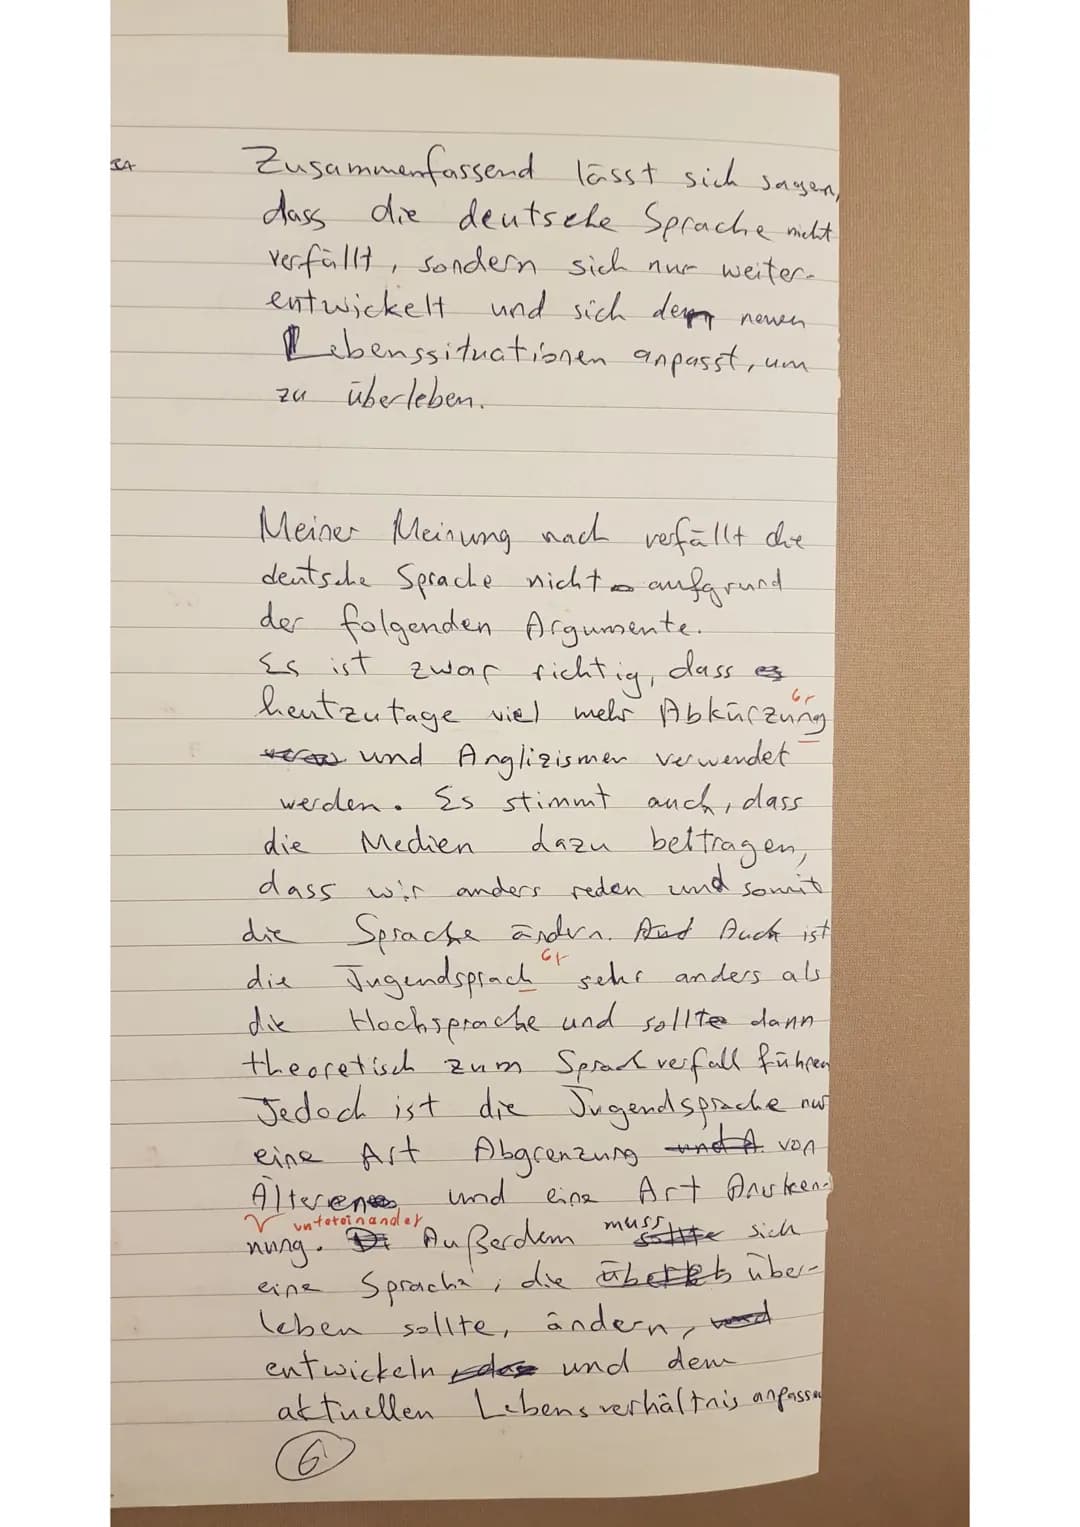 Zusammenfassend lässt sich sagen,
dass die deutsche Sprache nicht
verfällt, sondern sich nur weiter-
entwickelt und sich den neuen
Lebenssituationen anpasst, um
zu überleben.
Meiner Meinung nach verfällt die
deutsche Sprache nicht aufgrund
der folgenden Argumente.
Es ist zwar richtig, dass es
Gr
heutzutage viel mehr Abkürzung
und Anglizismen verwendet
werden. Es stimmt auch, dass
die Medien dazu beitragen,
dass wir anders reden und somit
die Sprache ändern. Auch ist
Gr
die Jugendsprach sehr anders als
die Hochsprache und sollte dann
theoretisch zum Sprachverfall führen
Jedoch ist die Jugendsprache nur
eine Art Abgrenzung und A von
Älteren und eine Art Anerken-
untereinander
nung. Di Außerdem muss sollte sich
eine Sprache, die überleb über-
leben sollte, ändern, und
entwickeln und dem
aktuellen Lebensverhältnis anpassen
6